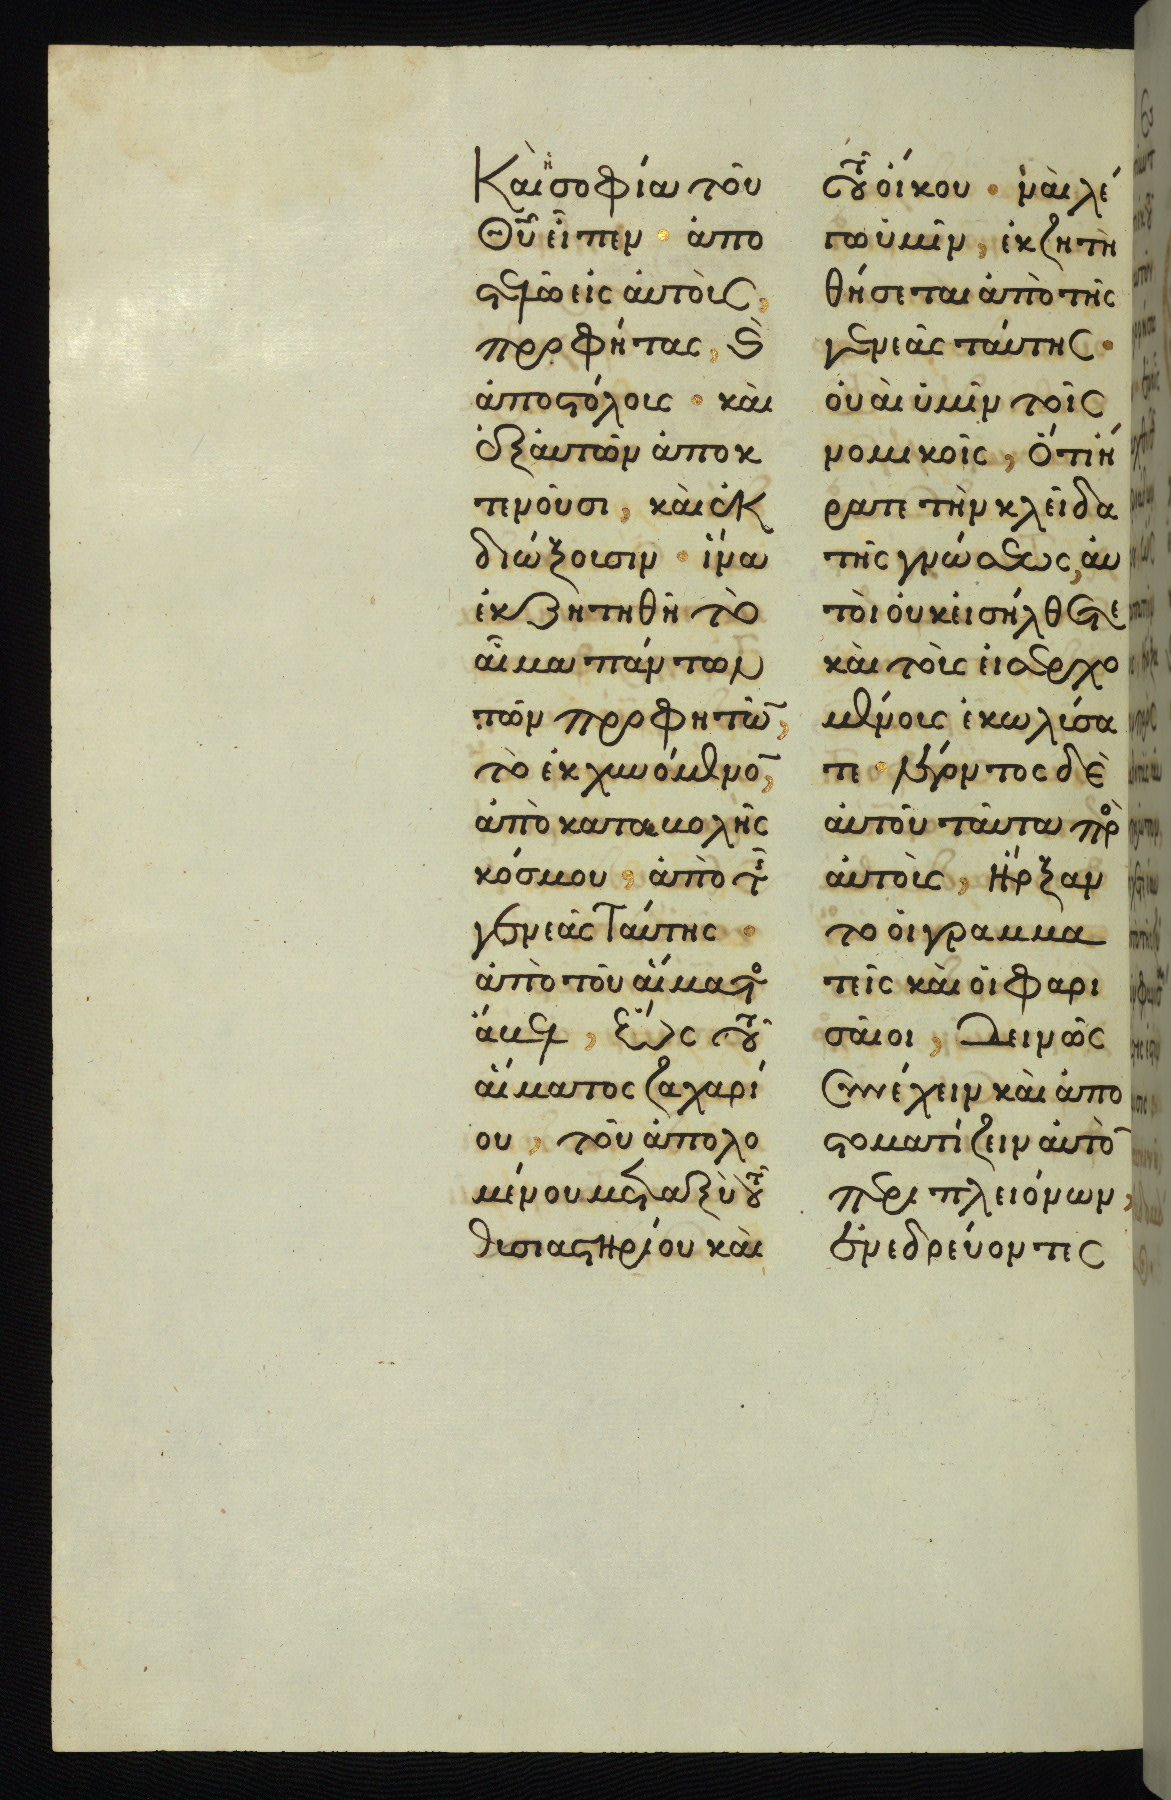 Καὶ ἡ σοφία τοῦ
Θῦ εἶπεν · ἀπο
στελῶ εἰς αὐτοὺς,
προφήτας, καὶ
ἀποστόλους · καὶ
ἐξ αὐτῶν ἀποκ
τενοῦσι, καὶ ἐκ
διώξουσιν · ἵνα
ἐκζητηθῆ τὸ
αἷμα πάντων
τῶν προφητῶ̄,
τὸ ἐκχυνόμενο̄,
ἀπὸ καταβολῆς
κόσμου, ἀπὸ τῆς
γενεᾶς ταύτης ·
ἀπὸ τοῦ αἵματος
ἄβελ, ἕως τοῦ
αἵματος ζαχαρί
ου, τοῦ ἀπολο
μένου μεταξὺ τοῦ
θυσιαστηρίου καὶ
τοῦ οἴκου · ναὶ λέ
γω ὑμῖν, ἐκζητη
θήσεται ἀπὸ τῆς
γενεᾶς ταύτης ·
οὐαὶ ὑμῖν τοῖς
νομικοῖς, ὅτι ἤ
ρατε τὴν κλεῖδα
τῆς γνώσεως, αὐ
τοὶ οὐκ εἰσήλθετε
καὶ τοὺς εἰσερχο
μένους ἐκωλύσα
τε · λέγοντος δὲ
αὐτοῦ ταῦτα πρὸ
αὐτοὺς, ἤρξαν
το οἱ γραμμα
τεῖς καὶ οἱ φαρι
σαῖοι, δεινῶς
συνέχειν καὶ ἀπο
στοματίζειν αὐτὸ̄
περὶ πλειόνων,
ἐνεδρεύοντες